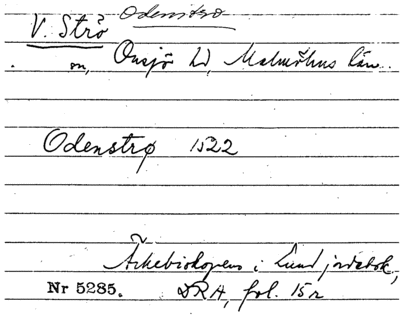 Odenstro
V. Strö
sn, Onsjö hd, Malmöhus län.
Odenstrø 1522
Ärkebiskopens i Lund jordebok,
Nr 5285. DRA, fol. 15r